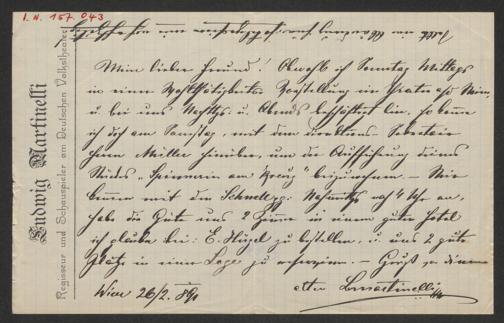 I. N. 157.043
Ludwig Martinelli
Regisseur und Schauspieler am Deutschen Volkstheater
Mein lieber Freund! Obwohl ich Sonntag Mittags
in einer Wohltätigkeits Vorstellung im Theater a/d Wien,
u. bei uns Nachttgs. u. Abends beschäftigt bin, so komme
ich doch am Samstag, mit dem Direktions-Sekretair
Herrn Müller hinüber, um der Aufführung deines
Stückes „Spinnerin am Kreuz" beizuwohnen. – Wir
kommen mit dem Schnellzg. Nachmittgs nach 4 Uhr an,
habe die Güte uns 2 Zimmer in einem guten Hotel
ich glaube bei: E. Hügel zu bestellen, u. uns 2 gute
Plätze in einer Loge zu reserviren. – Gruß von deinem
Wien 26/2. 89
alten LMartinelli